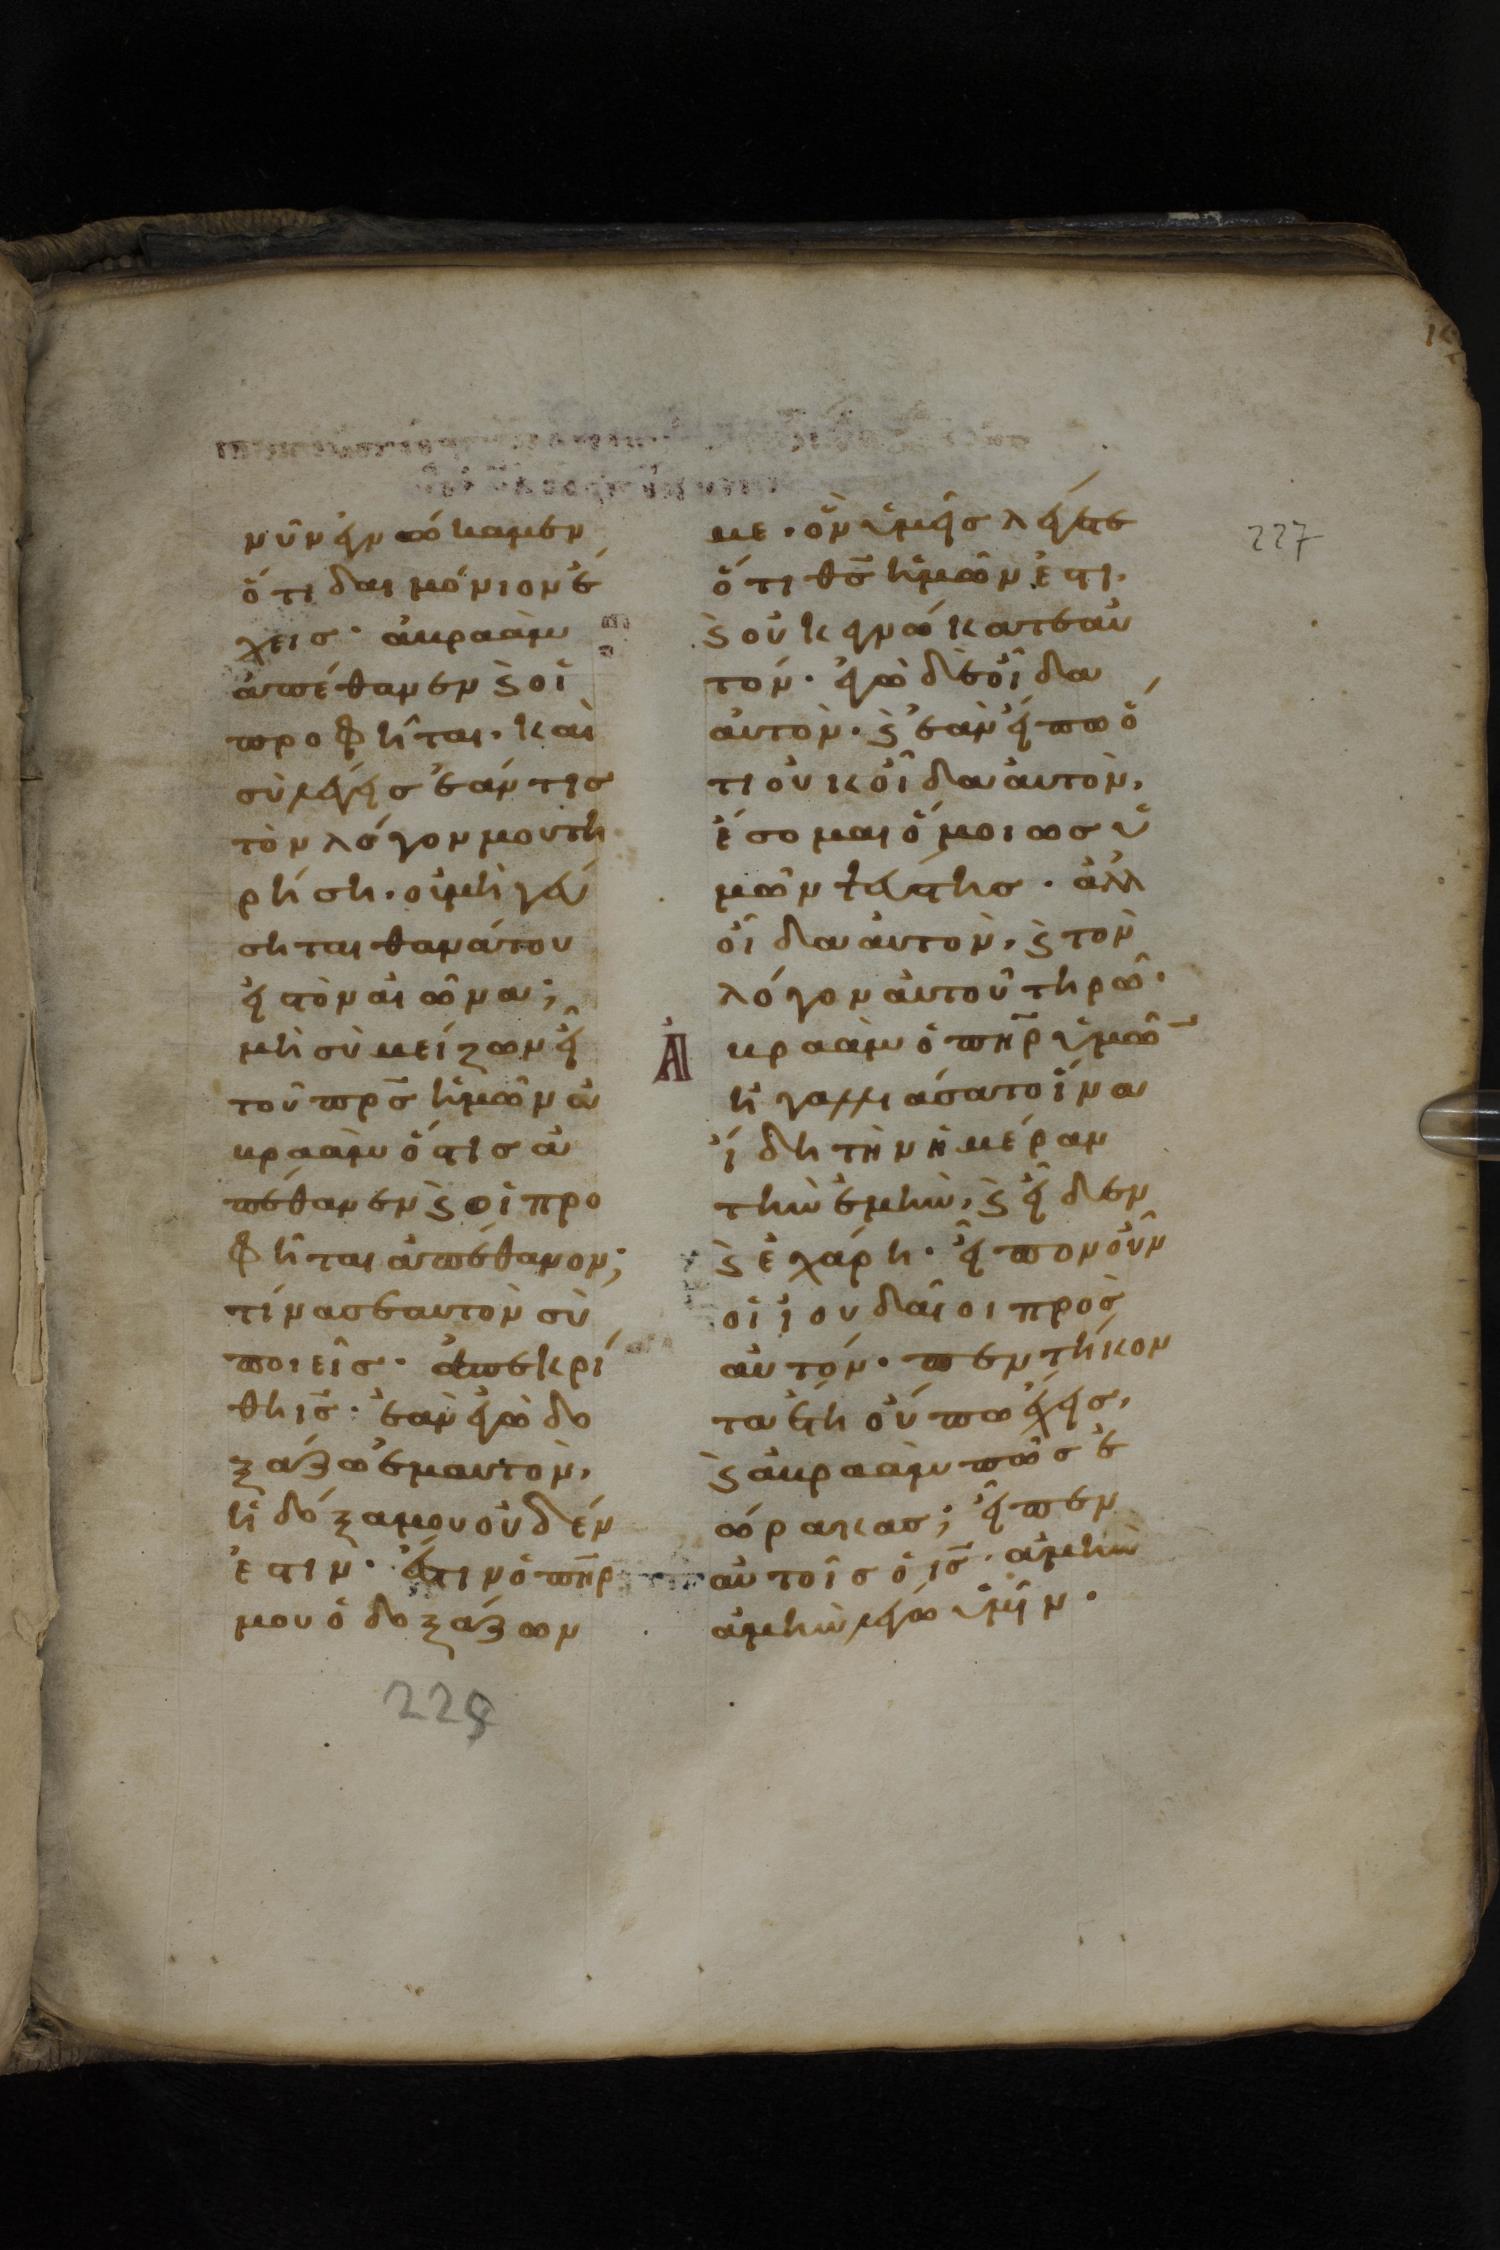 νῦν ἐγνώκαμεν
ὅτι δαιμόνιον ἔ
χεις· ἀβραὰμ
ἀπέθανεν ϗ οἱ
προφῆται· καὶ
σὺ λέγεις ἐάν τις
τὸν λόγον μου τη
ρήση· οὐ μὴ γεύ
σηται θανάτου
εἰς τὸν αἰῶνα;
μὴ σὺ μείζων εἶ
τοῦ πρ̅ς ἡμῶν ἀ
βραὰμ ὅστις ἀ
πέθανεν ϗ οἱ προ
φῆται ἀπέθανον;
τίνα σεαυτὸν σὺ
ποιεῖς· ἀπεκρί
θη ις̅· ἐὰν ἐγὼ δο
ξάζω ἐμαυτὸν,
ἡ δόξα μου οὐδέν
ἐστιν· ἔστιν ὁ πη̅ρ
μου ὁ δοξάζων
με· ὃν ὑμεῖς λέγετε
ὅτι θς̅ ἡμῶν ἐστι·
ϗ οὐκ ἐγνώκατε αὐ
τόν· ἐγὼ δὲ οἶδα
αὐτὸν· ϗ ἐὰν εἴπω ὅ
τι οὐκ οἶδα αὐτὸν,
ἔσομαι ὅμοιως ὑ
μῶν ψεύστης· ἀλλ
οἶδα αὐτὸν, ϗ τὸν
λόγον αὐτοῦ τηρῶ·
Ἀβραὰμ ὁ πη̅ρ ὑμῶ̅
ἠγαλλιάσατο ἵνα
ἴδη τὴν ἡμέραν
τὴν ἐμὴν, ϗ εἶδεν
ϗ ἐχάρη· εἶπον οὖν
οἱ ἰουδαῖοι πρὸς
αὐτόν· πεντήκον
τα ἔτη οὔπω ἔχεις,
ϗ ἀβραὰμ πῶς ἑ
ώρακας; εἶπεν
αὐτοῖς ὁ ις̅· ἀμὴν
ἀμὴν λέγω ὑμῖν·
227
228